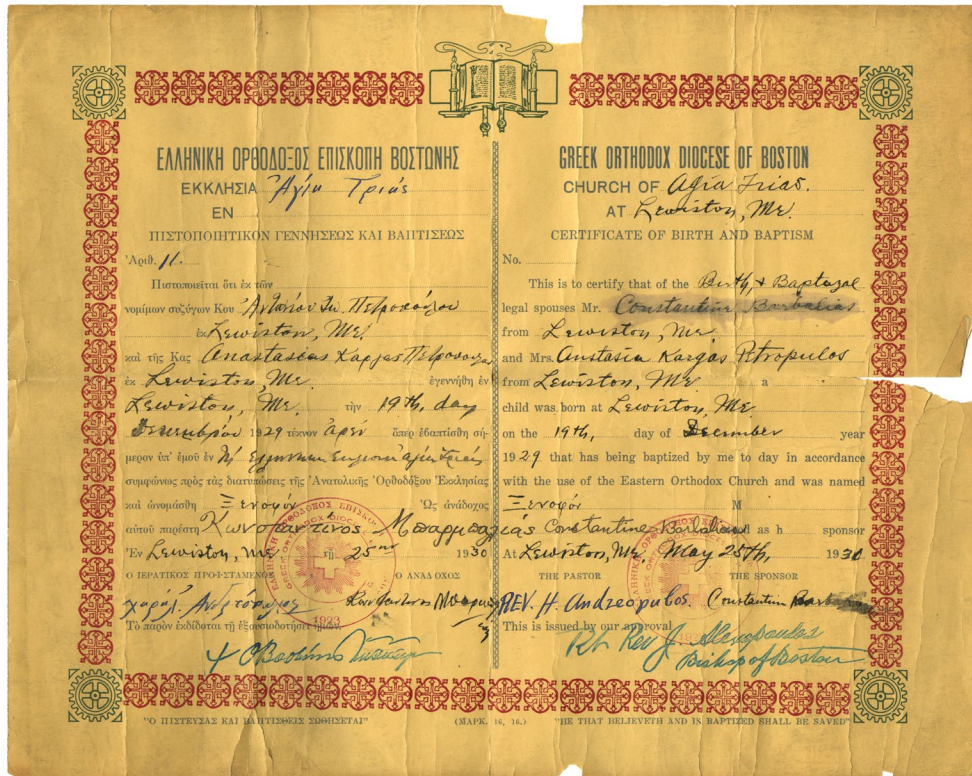 ΕΛΛΗΝΙΚΗ ΟΡΘΟΔΟΞΟΣ ΕΠΙΣΚΟΠΗ ΒΟΣΤΩΝΗΣ
ΕΚΚΛΗΣΙΑ Ἁγία Τριάς
ΕΝ
ΠΙΣΤΟΠΟΙΗΤΙΚΟΝ ΓΕΝΝΗΣΕΩΣ ΚΑΙ ΒΑΠΤΙΣΕΩΣ
Ἀριθ. 11.
Πιστοποιεῖται ὅτι ἐκ τῶν
νομίμων συζύγων Κου Ἀντωνίου Πετροπούλου
ἐκ Lewiston, Me.
καὶ τῆς Κας Αναστασίας Κάργας
ἐκ Lewiston, Me. ἐγεννήθη ἐν
Lewiston, Me. τὴν 19th, day
Δεκεμβρίου 1929 τέκνον ἄρεν ὅπερ ἐβαπτίσθη σή-
μερον ὑπ' ἐμοῦ ἐν
συμφώνως πρὸς τὰς διατυπώσεις τῆς Ἀνατολικῆς Ὀρθοδόξου Ἐκκλησίας
καὶ ὠνομάσθη Ξενοφῶν Ὡς ἀνάδοχος
αὐτοῦ παρέστη Κωνσταντίνος Μπαρμπαλιάς
Ἐν Lewiston, Me. 25 1930
Ο ΙΕΡΑΤΙΚΟΣ ΠΡΟΪΣΤΑΜΕΝΟΣ Ο ΑΝΑΔΟΧΟΣ
χαράλ. Ανδρεόπουλος Κωνσταντίνος
Τὸ παρὸν ἐκδίδοται τῇ ἐξουσιοδοτήσει ἡμῶν.
GREEK ORTHODOX DIOCESE OF BOSTON
CHURCH OF Agia Trias.
AT Lewiston, Me.
CERTIFICATE OF BIRTH AND BAPTISM
No.
This is to certify that of the Birth, &
legal spouses Mr. Constantine Barbalias
from Lewiston, Me.
and Mrs. Anstasia Kargas Ptropulos
from Lewiston, Me. a
child was born at Lewiston, Me.
on the 19th, day of December year
1929 that has being baptized by me to day in accordance
with the use of the Eastern Orthodox Church and was named
Ξενοφῶν M
Constantine Barbalias as h sponsor
At Lewiston, Me. May 25th, 1930
THE PASTOR THE SPONSOR
REV. H. Andreopulos. Constantine
This is issued by our approval
Rt Rev J.
Bishop of Boston
1923
"Ο ΠΙΣΤΕΥΣΑΣ ΚΑΙ ΒΑΠΤΙΣΘΕΙΣ ΣΩΘΗΣΕΤΑΙ" (ΜΑΡΚ. 16, 16.) "HE THAT BELIEVETH AND IS BAPTIZED SHALL BE SAVED"